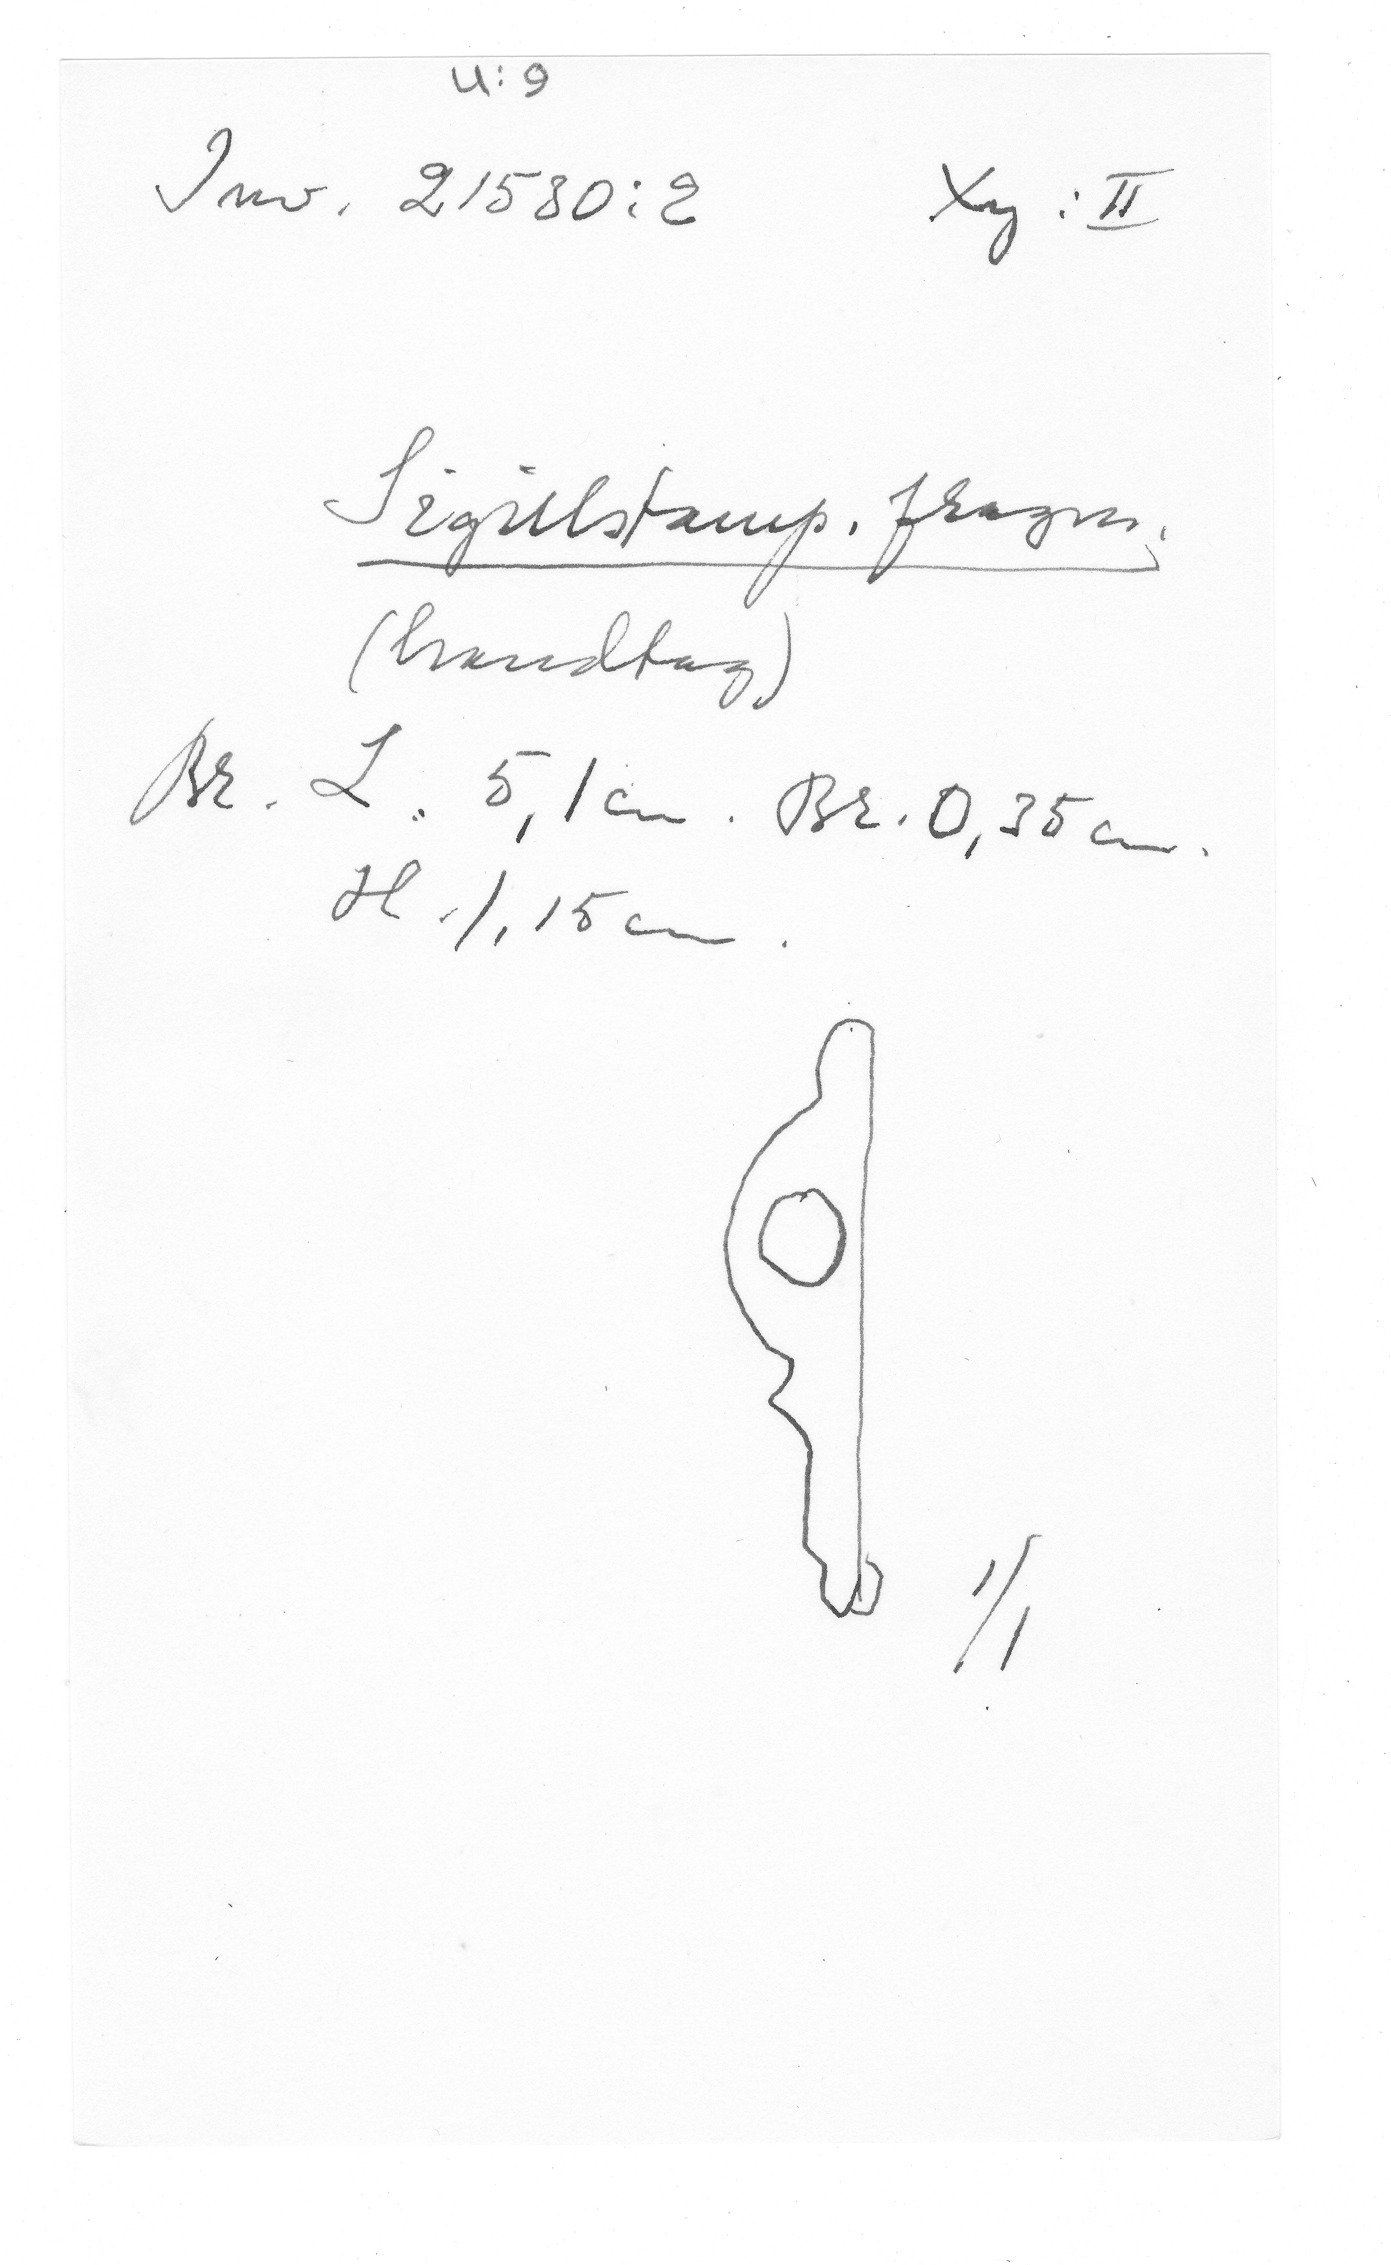 U:9
Inv. 21530:2 Xy : II
Sigillstamp. fragm.
(handtag)
Br. L. 5,1 cm. Br. 0,35 cm.
H. 1,15 cm.
1/1